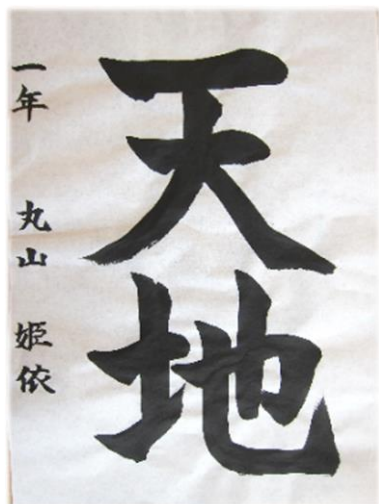 天地
一年 丸山 姫依